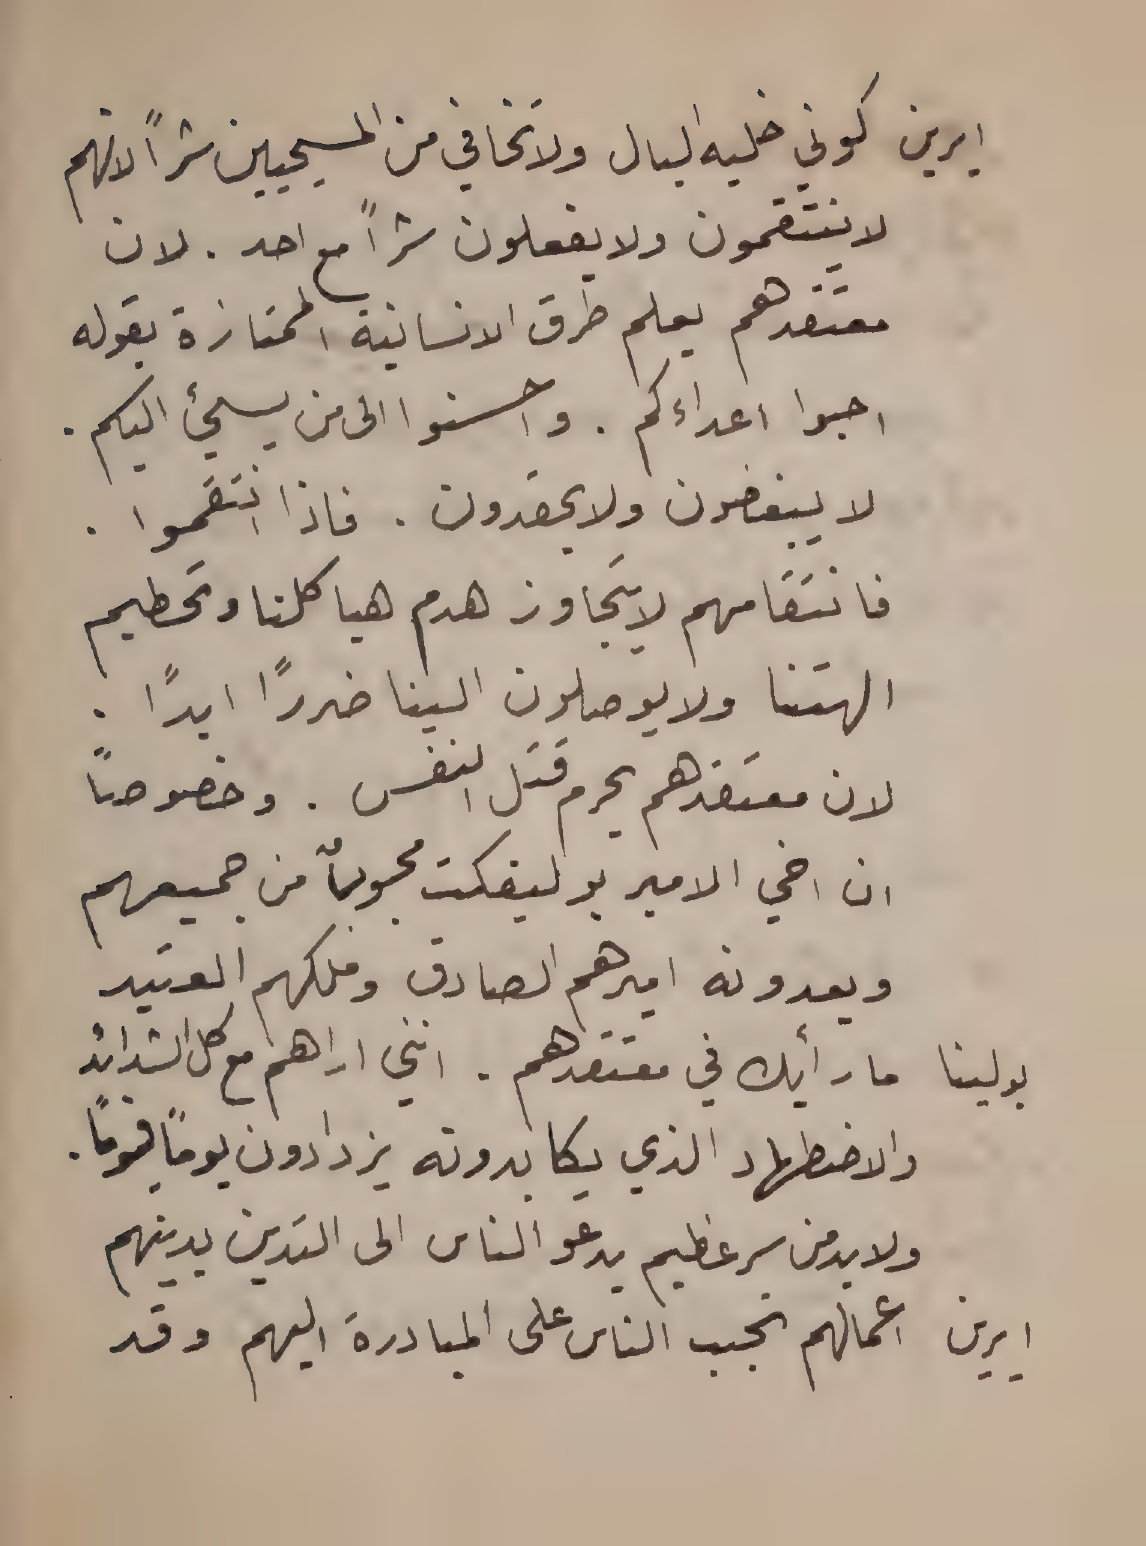 ايرين كوني خليه البال ولا تخافي من المسيحيين شراً لانهم
لا ينتقمون ولا يفعلون شراً مع احد . لان
معتقدهم يعلم طرق الانسانية الممتازة بقوله
احبوا اعداءكم . واحسنوا الى من يسيئ اليكم .
لا يبغضون ولا يحقدون . فاذا انتقموا .
فانتقامهم لا يتجاوز هدم هياكلنا وتحطيم
الهتنا ولا يوصلون الينا ضررًا ابدًا .
لان معتقدهم يحرم قتل النفس . وخصوصًا
ان اخي الامير بوليفكت محبوبًا من جميعهم
ويعدونه اميرهم الصادق وملكهم العتيد
بولينا ما رأيك في معتقدهم . انني اراهم مع كل الشدائد
والاضطهاد الذي يكابدونه يزدادون يومًا فيومًا .
ولا بد من سر عظيم يدعو الناس الى التدين بدينهم
ايرين اعمالهم تجبب الناس على المبادرة اليهم وقد